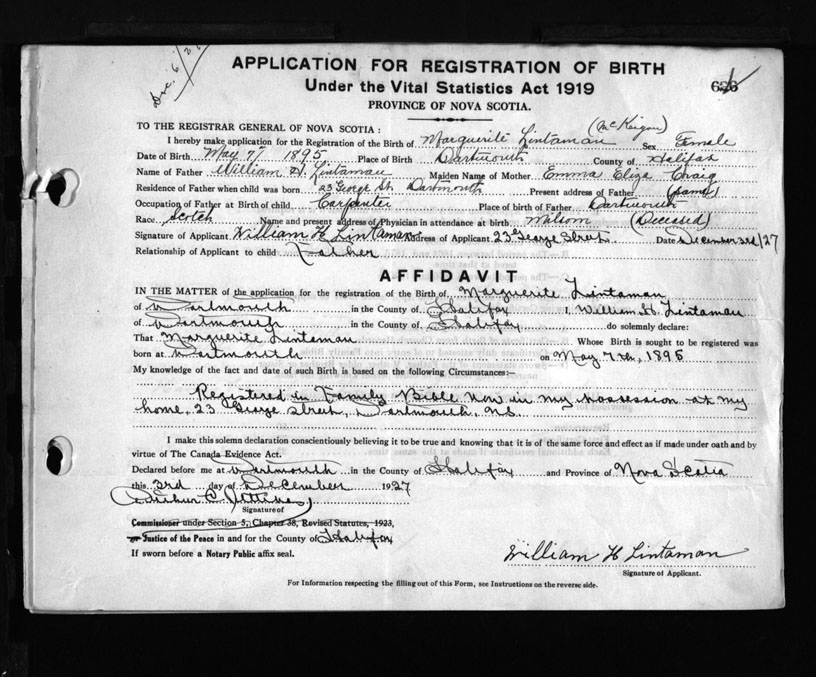 Dec. 6/26
APPLICATION FOR REGISTRATION OF BIRTH
Under the Vital Statistics Act 1919
PROVINCE OF NOVA SCOTIA.
TO THE REGISTRAR GENERAL OF NOVA SCOTIA :
I hereby make application for the Registration of the Birth of Marguerite Lintaman (McKeigan) Sex Female
Date of Birth May 7 1895 Place of Birth Dartmouth County of Halifax
Name of Father William H. Lintaman Maiden Name of Mother Emma Eliza Craig
Residence of Father when child was born 23 George St. Dartmouth Present address of Father (same)
Occupation of Father at Birth of child Carpenter Place of birth of Father Dartmouth
Race Scotch Name and present address of Physician in attendance at birth Milsom (Deceased)
Signature of Applicant William H Lintaman Address of Applicant 23 George Street Date December 3rd/27
Relationship of Applicant to child Father
AFFIDAVIT
IN THE MATTER of the application for the registration of the Birth of Marguerite Lintaman
of Dartmouth in the County of Halifax I, William H. Lintaman
of Dartmouth in the County of Halifax do solemnly declare:
That Marguerite Lintaman Whose Birth is sought to be registered was
born at Dartmouth on May 7th, 1895
My knowledge of the fact and date of such Birth is based on the following Circumstances:-
Registered in Family Bible now in my possession at my
home, 23 George Street, Dartmouth, N.S.
I make this solemn declaration conscientiously believing it to be true and knowing that it is of the same force and effect as if made under oath and by
virtue of The Canada Evidence Act.
Declared before me at Dartmouth in the County of Halifax and Province of Nova Scotia
this 3rd day of December 1927
Arthur C.
Signature of
Commissioner under Section 5, Chapter 38, Revised Statutes, 1923,
or Justice of the Peace in and for the County of Halifax
If sworn before a Notary Public affix seal.
William H Lintaman
Signature of Applicant.
For Information respecting the filling out of this Form, see Instructions on the reverse side.